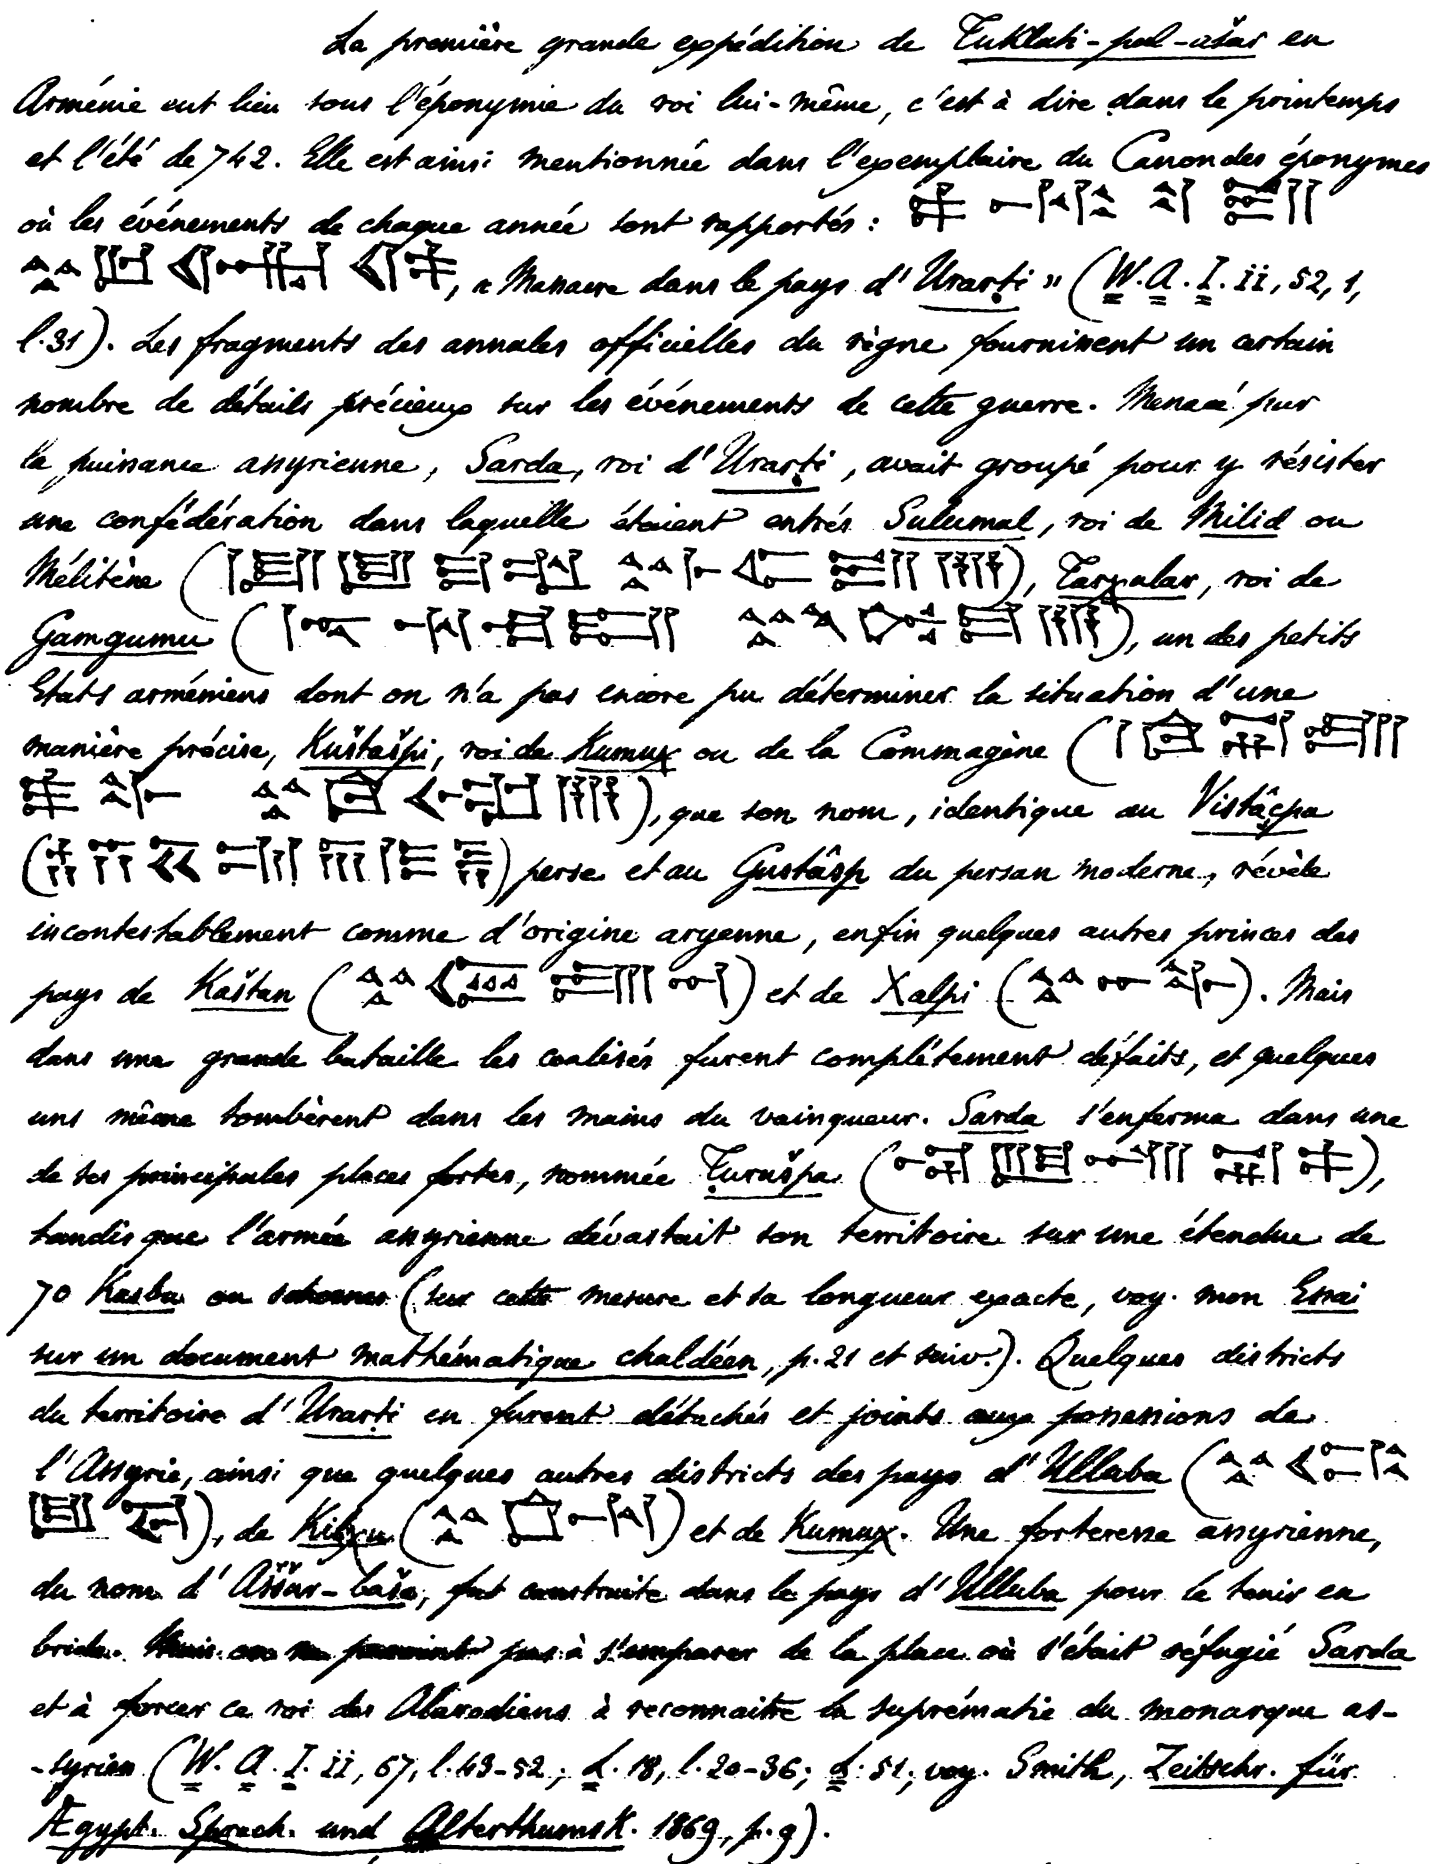 La première grande expédition de Tuklati-pal-ašar en
Arménie eut lieu sous l'éponymie du roi lui-même, c'est à dire dans le printemps
et l'été de 742. Elle est ainsi mentionnée dans l'exemplaire du Canon des éponymes
où les événements de chaque année sont rapportés :
, « Massacre dans le pays d'Urarṭi » (W.A.I. ii, 52, 1,
l.31). Les fragments des annales officielles du règne fournissent un certain
nombre de détails précieux sur les événements de cette guerre. Menacé par
la puissance assyrienne, Sarda, roi d'Urarṭi, avait groupé pour y résister
une confédération dans laquelle étaient entrés Sulumal, roi de Milid ou
Mélitène ( ), Tarχular, roi de
Gamgumu ( ), un des petits
Etats arméniens dont on n'a pas encore pu déterminer la situation d'une
manière précise, Kuštašpi, roi de Kumuχ ou de la Commagène (
), que son nom, identique au Vistâçpa
( ) perse et au Gustâsp du persan moderne, révèle
incontestablement comme d'origine aryenne, enfin quelques autres princes des
pays de Kaštan ( ) et de Χalpi ( ). Mais
dans une grande bataille les coalisés furent complètement défaits, et quelques
uns même tombèrent dans les mains du vainqueur. Sarda s'enferma dans une
de ses principales places fortes, nommée Ṭurušpa ( ),
tandis que l'armée assyrienne dévastait son territoire sur une étendue de
70 Kasbu ou schoenes (sur cette mesure et sa longueur exacte, voy. mon Essai
sur un document mathématique chaldéen, p.21 et suiv.). Quelques districts
du territoire d'Urarṭi en furent détachés et joints aux possessions de
l'Assyrie, ainsi que quelques autres districts des pays d'Ulluba (
), de Kilχu ( ) et de Kumuχ. Une forteresse assyrienne,
du nom d'Aššur-baša, fut construite dans le pays d'Ulluba pour le tenir en
bride. Mais on ne parvint pas à s'emparer de la place où s'était réfugié Sarda
et à forcer ce roi des Alarodiens à reconnaitre la suprématie du monarque as-
-syrien (W.A.I. ii, 67, l.43-52; L. 18, l.20-36; L. 51; voy. Smith, Zeitschr. für
Ægypt. Sprach. und Alterthumsk. 1869, p.9).